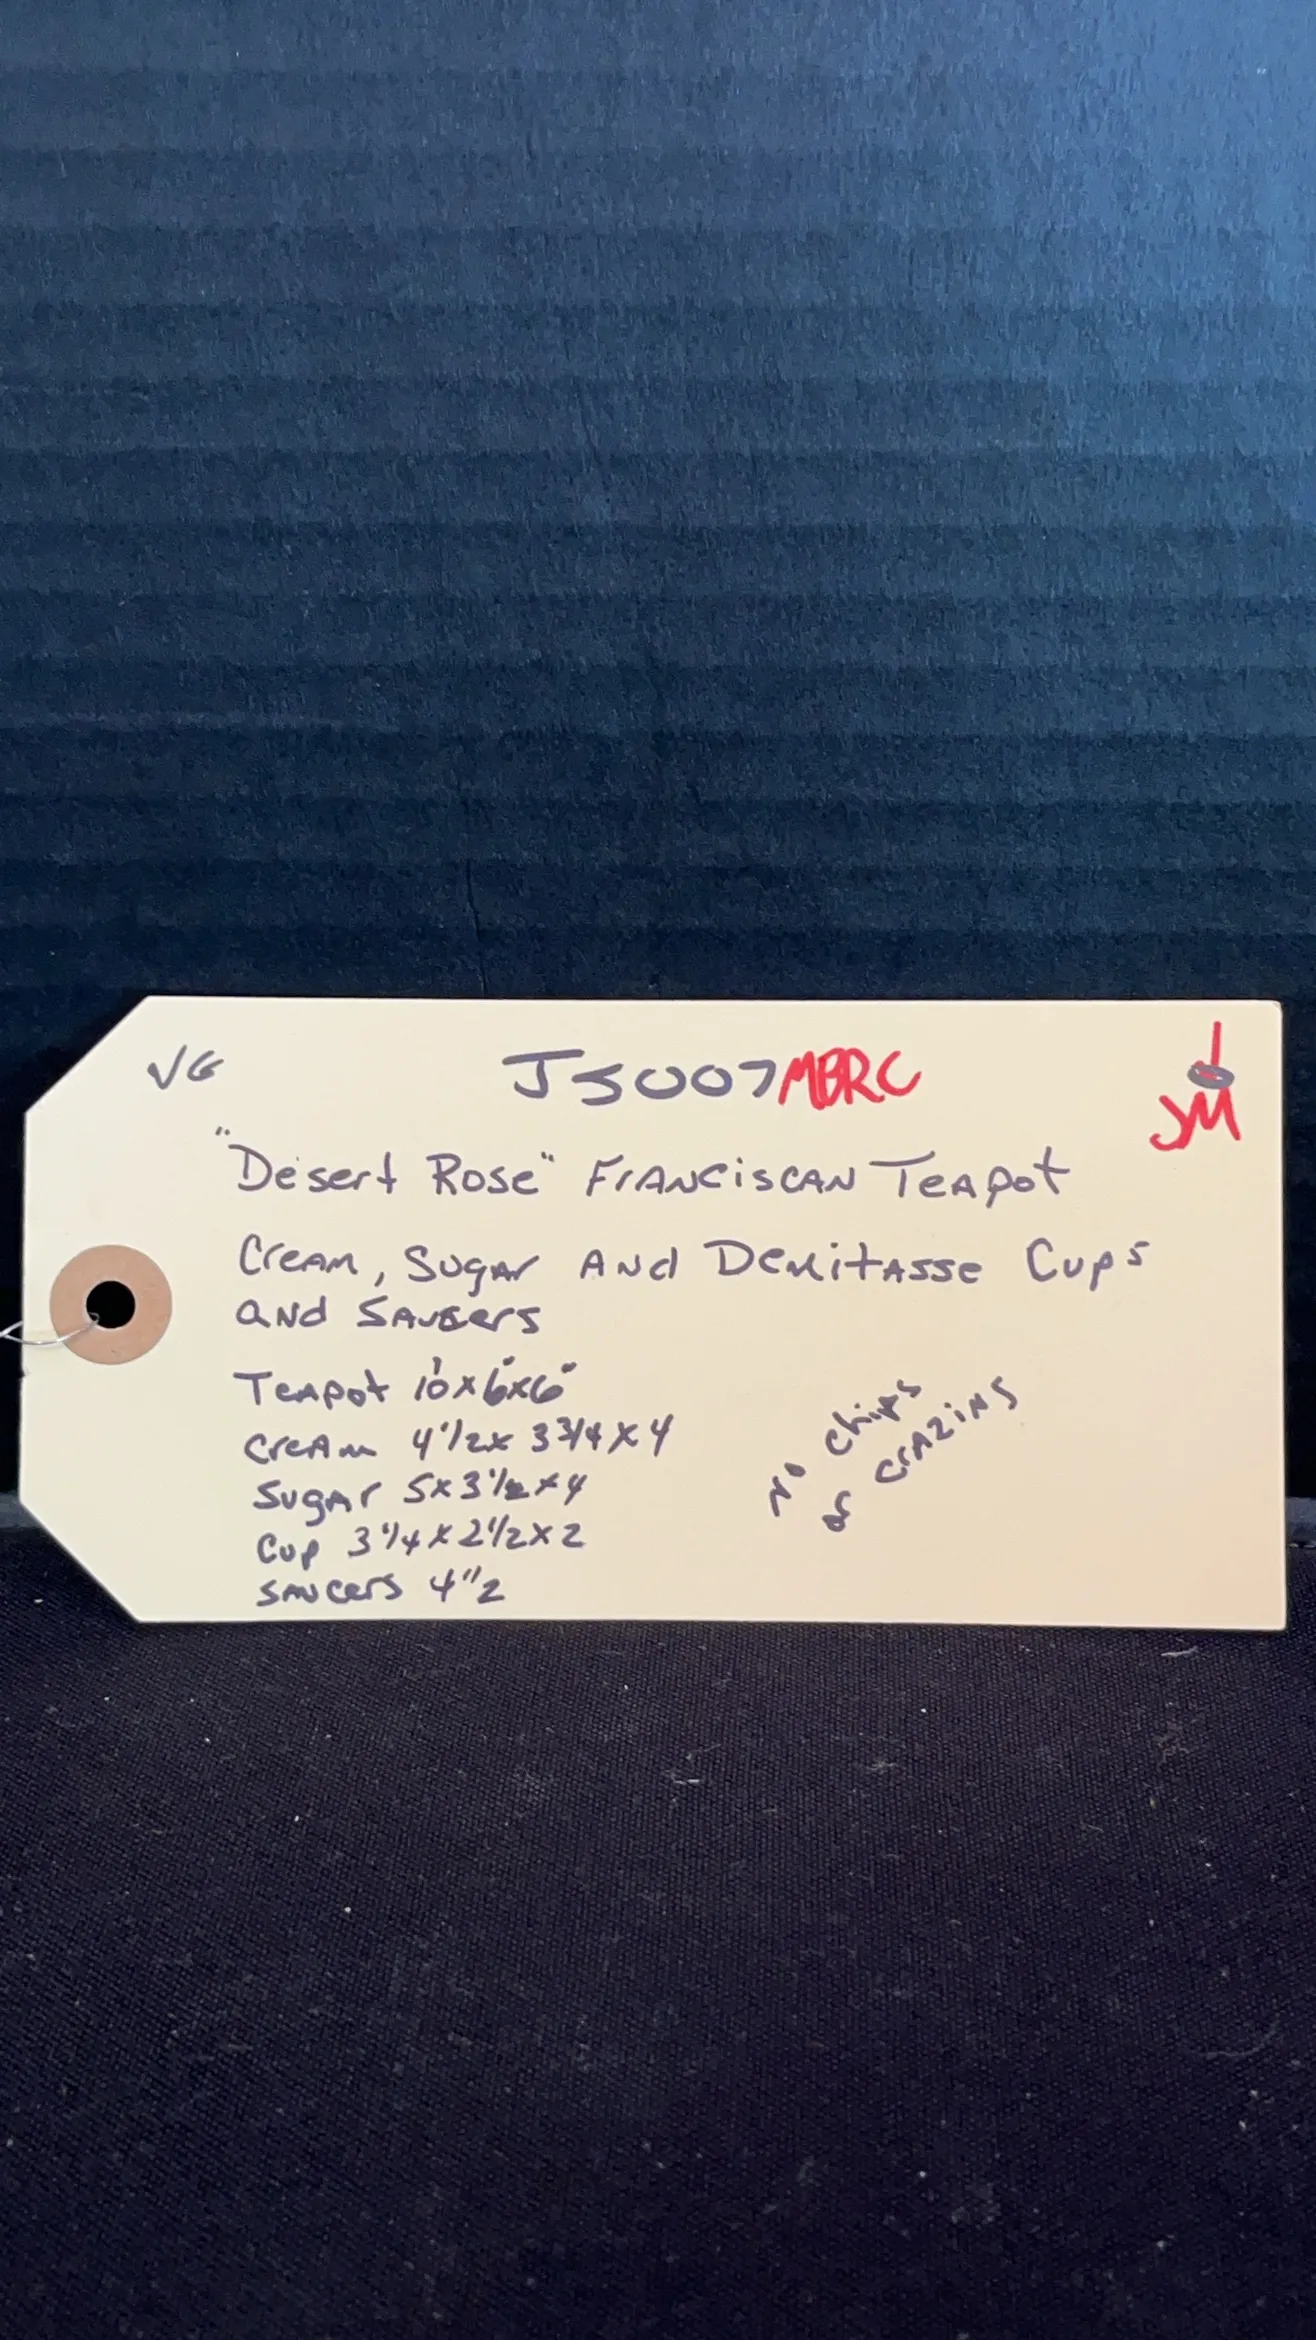 VG
JS007MBRC
JM
"Desert Rose" Franciscan Teapot
Cream, Sugar And Demitasse Cups
and Saucers
Teapot 10"x6"x6"
Cream 4 1/2 x 3 3/4 x 4
Sugar 5x3 1/2 x4
Cup 3 1/4 x 2 1/2 x 2
Saucers 4 1/2
No Chips
or crazing